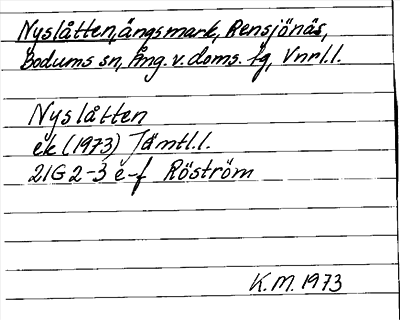 Nyslåtten, ängsmark, Rensjönäs,
Bodums sn, Ång. v. doms. fg, Vnrl.l.
Nyslåtten
ek (1973) Jämtl.l.
21G 2-3 e-f Röström
K.M. 1973